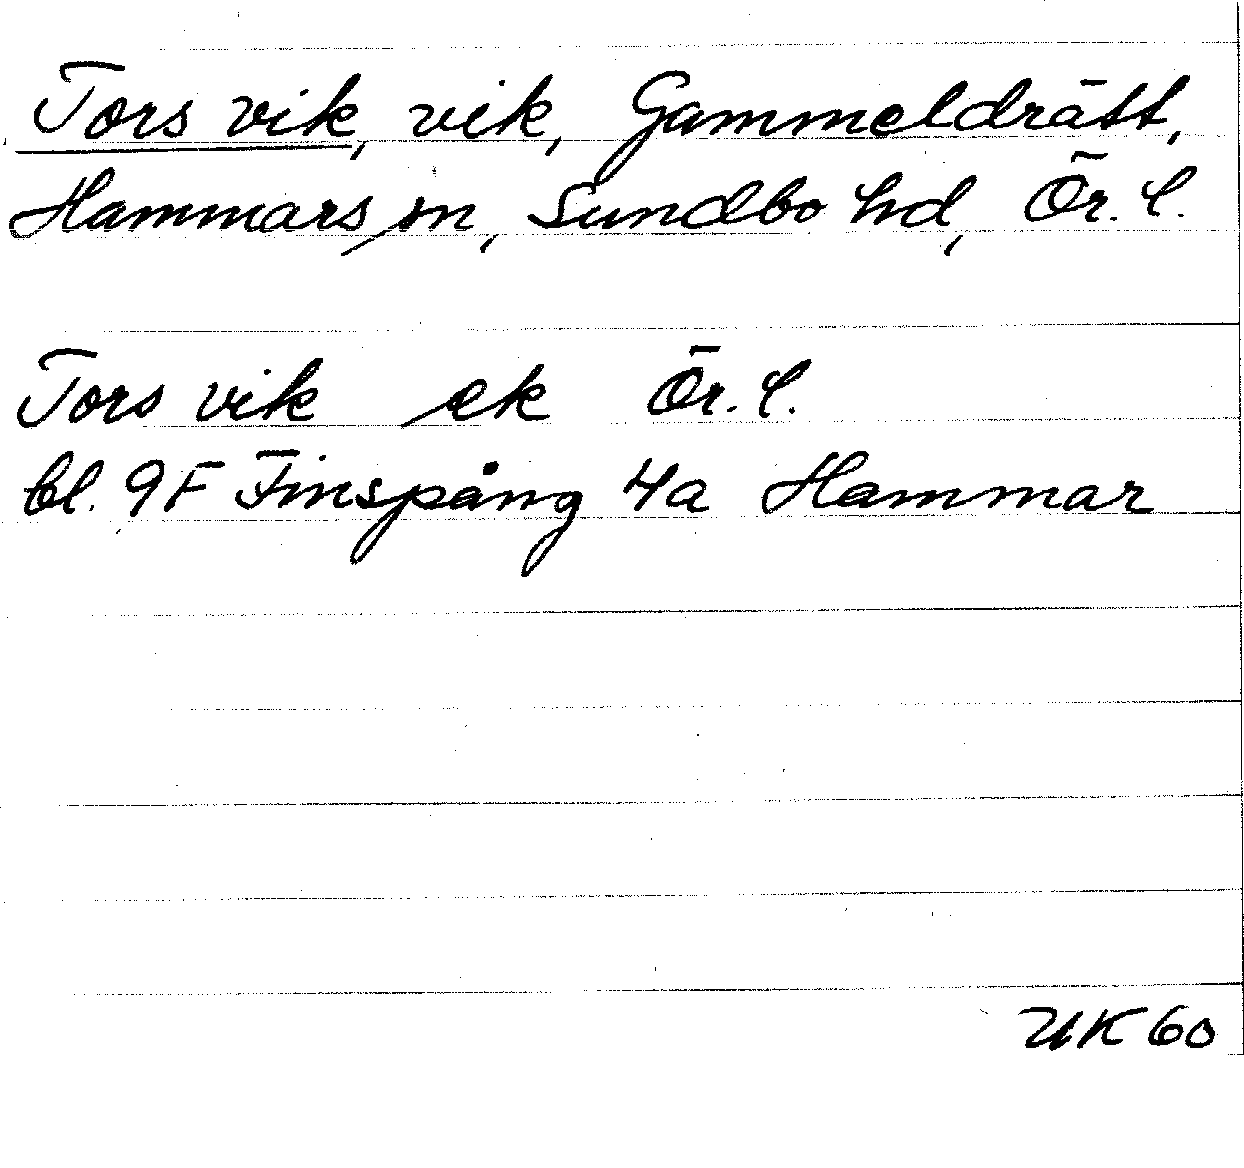 Tors vik, vik, Gammeldrätt,
Hammars sn, Sundbo hd, Ör. l.
Tors vik ek Ör. l.
bl. 9F Finspång 4a Hammar
UK 60